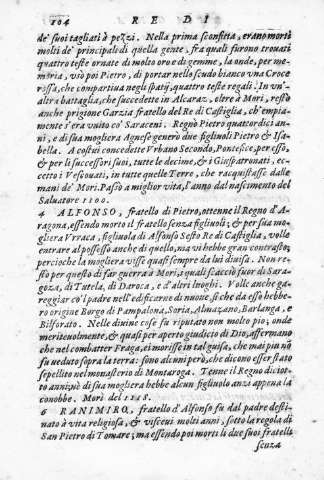 104 RE DI
de' suoi tagliati à pezzi. Nella prima sconfitta, erano morti
molti de' principali di quella gente, fra quali furono trouati
quattro teste ornate di molto oro e gemme, la onde, per me-
moria, viò poi Pietro, di portar nello scudo bianco vna Croce
rossa, che compartiua negli spatij, quattro teste regali. In vn'-
altra battaglia, che succedette in Alcaraz, oltre à Mori, restò
anche prigione Garzia fratello del Re di Castiglia, ch'empia-
mente s'era vnito co' Saraceni. Regnò Pietro quattordici an-
ni, e di sua moglier a Agnese generò due figliuoli Pietro & Isa-
bella. A costui concedette Vrbano Secondo, Pontefice, per esso,
& per li successori suoi, tutte le decime, & i Giuspatronati, ec-
cetto i Vescouati, in tutte quelle Terre, che racquistasse dalle
mani de' Mori. Passò a miglior vita, l'anno dal nascimento del
Salvatore 1100.
4 ALFONSO, fratello di Pietro, ottenne il Regno d'A-
ragona, essendo morto il fratello senza figliuoli; & per sua mo-
gliera Vrraca, figliuola di Alfonso Sesto Re di Castiglia, vollo
entrare al possesso anche di quello, ma vi hebbe gran contrasto;
percioche la mogliera visse quasi sempre da lui diuisa. Non re-
stò per questo di far guerra a' Mori, i quali scacciò fuor di Sara-
goza, di Tutela, di Daroca, e d'altri luoghi. Volle anche ga-
reggiar co'l padre nell'edificarne di nuoue si che da esso hebbe-
ro origine Borgo di Pampalona, Soria, Almazano, Barlanga, e
Bilforato. Nelle diuine cose fu riputato non molto pio; onde
meriteuolmente, & quasi per aperto giudicio di Dio, affermano
che nel combatter Fraga, ei morisse in tal guisa, che mai più nò
fu veduto sopra la terra: sono alcuni però, che dicono esser stato
sepellito nel monasterio di Montaroga. Tenne il Regno diciot-
to anni, nè di sua mogliera hebbe alcun figliuolo anzi appena la
conobbe. Morì del 1118.
6 RANIMIRO, fratello d'Alfonso fu dal padre desti-
nato à vita religiosa, & viscui molti anni, sotto la regola di
San Pietro di Tomare; ma essendo poi morti li due suoi fratelli
senza